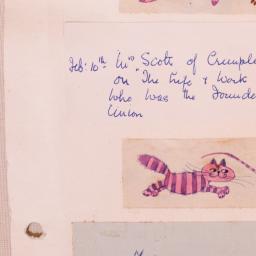 Feb: 10th Mrs Scott of Crumple
on "The Life & Work
who was the Founde
Union